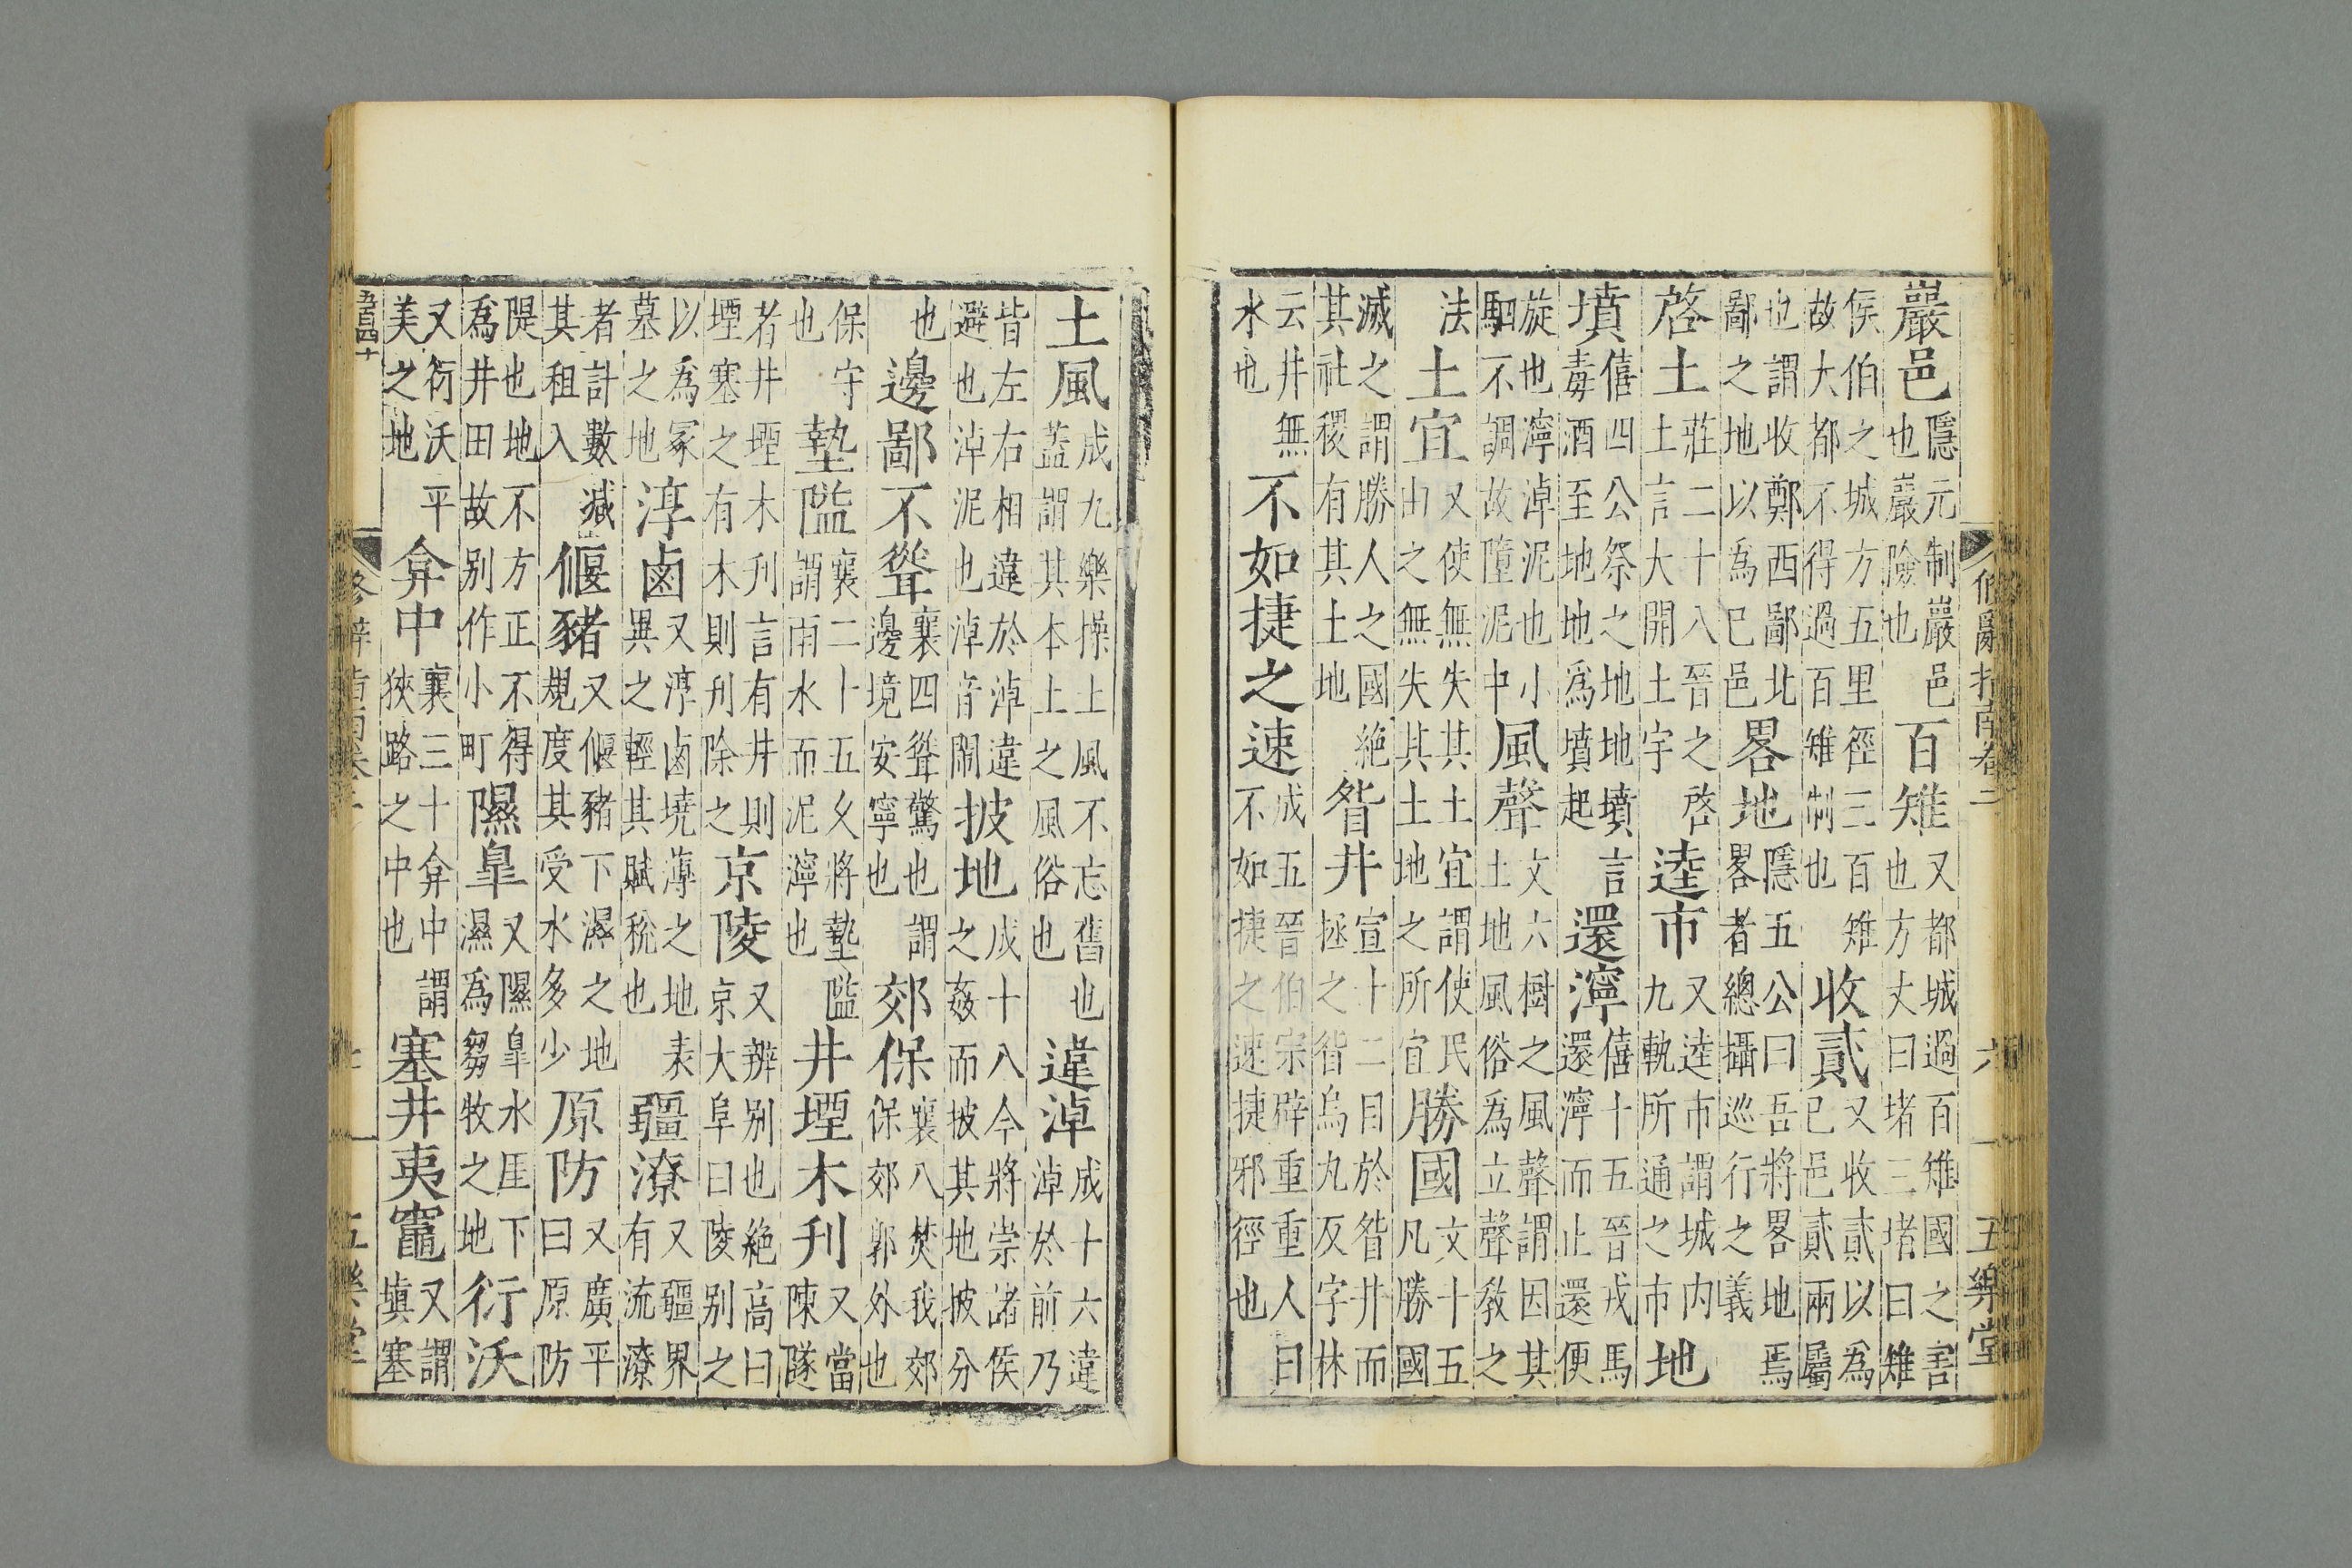 巖邑隱元制巖邑也巖險也百雉又都城過百雉國之害也方丈曰堵三堵曰雉
侯伯之城方五里徑三百雉故大都不得過百雉制也收貳又收貳以為已邑貳兩屬
也謂收鄭西鄙北鄙之地以為已邑畧地隱五公曰吾將畧地焉畧者總攝巡行之義
啓土莊二十八晉之啓土言大開土宇逵市又逵市謂城内九軌所通之市地
墳僖四公祭之地地墳言毒酒至地地爲墳起還濘僖十五晉戎馬還濘而止還便
旋也濘淖泥也小駟不調故墮泥中風聲文六樹之風聲謂因其土地風俗爲立聲教之
法土宜又使無失其土宜謂使民由之無失其土地之所宜勝國文十五凡勝國
滅之謂勝人之國絶其社稷有其土地眢井宣十二目於眢井而拯之眢烏丸反字林
云井無水也不如捷之速成五晉伯宗辟重重人曰不如捷之速捷邪徑也
脩辭指南卷二 六 五樂堂
土風成九樂操土風不忘舊也蓋謂其本土之風俗也違淖成十六違淖於前乃
皆左右相違於淖違避也淖泥也淖音鬧披地成十八今將崇諸侯之姦而披其地披分
也邊鄙不聳襄四聳驚也謂邊境安寧也郊保襄八焚我郊保郊郭外也
保守也墊隘襄二十五久將墊隘謂雨水而泥濘也井堙木刋又當陳隧
者井堙木刋言有井則堙塞之有木則刋除之京陵又辨别也絶高曰京大阜曰陵别之
以為冢墓之地淳鹵又淳鹵埆薄之地表異之輕其賦稅也疆潦又疆界有流潦
者計數減其租入偃豬又偃豬下濕之地規度其受水多少原防又廣平曰原防
隄也地不方正不得為井田故别作小町隰臯又隰臯水厓下濕爲芻牧之地衍沃
又衍沃平美之地弇中襄三十弇中謂狹路之中也塞井夷竈又謂塡塞
五百四十